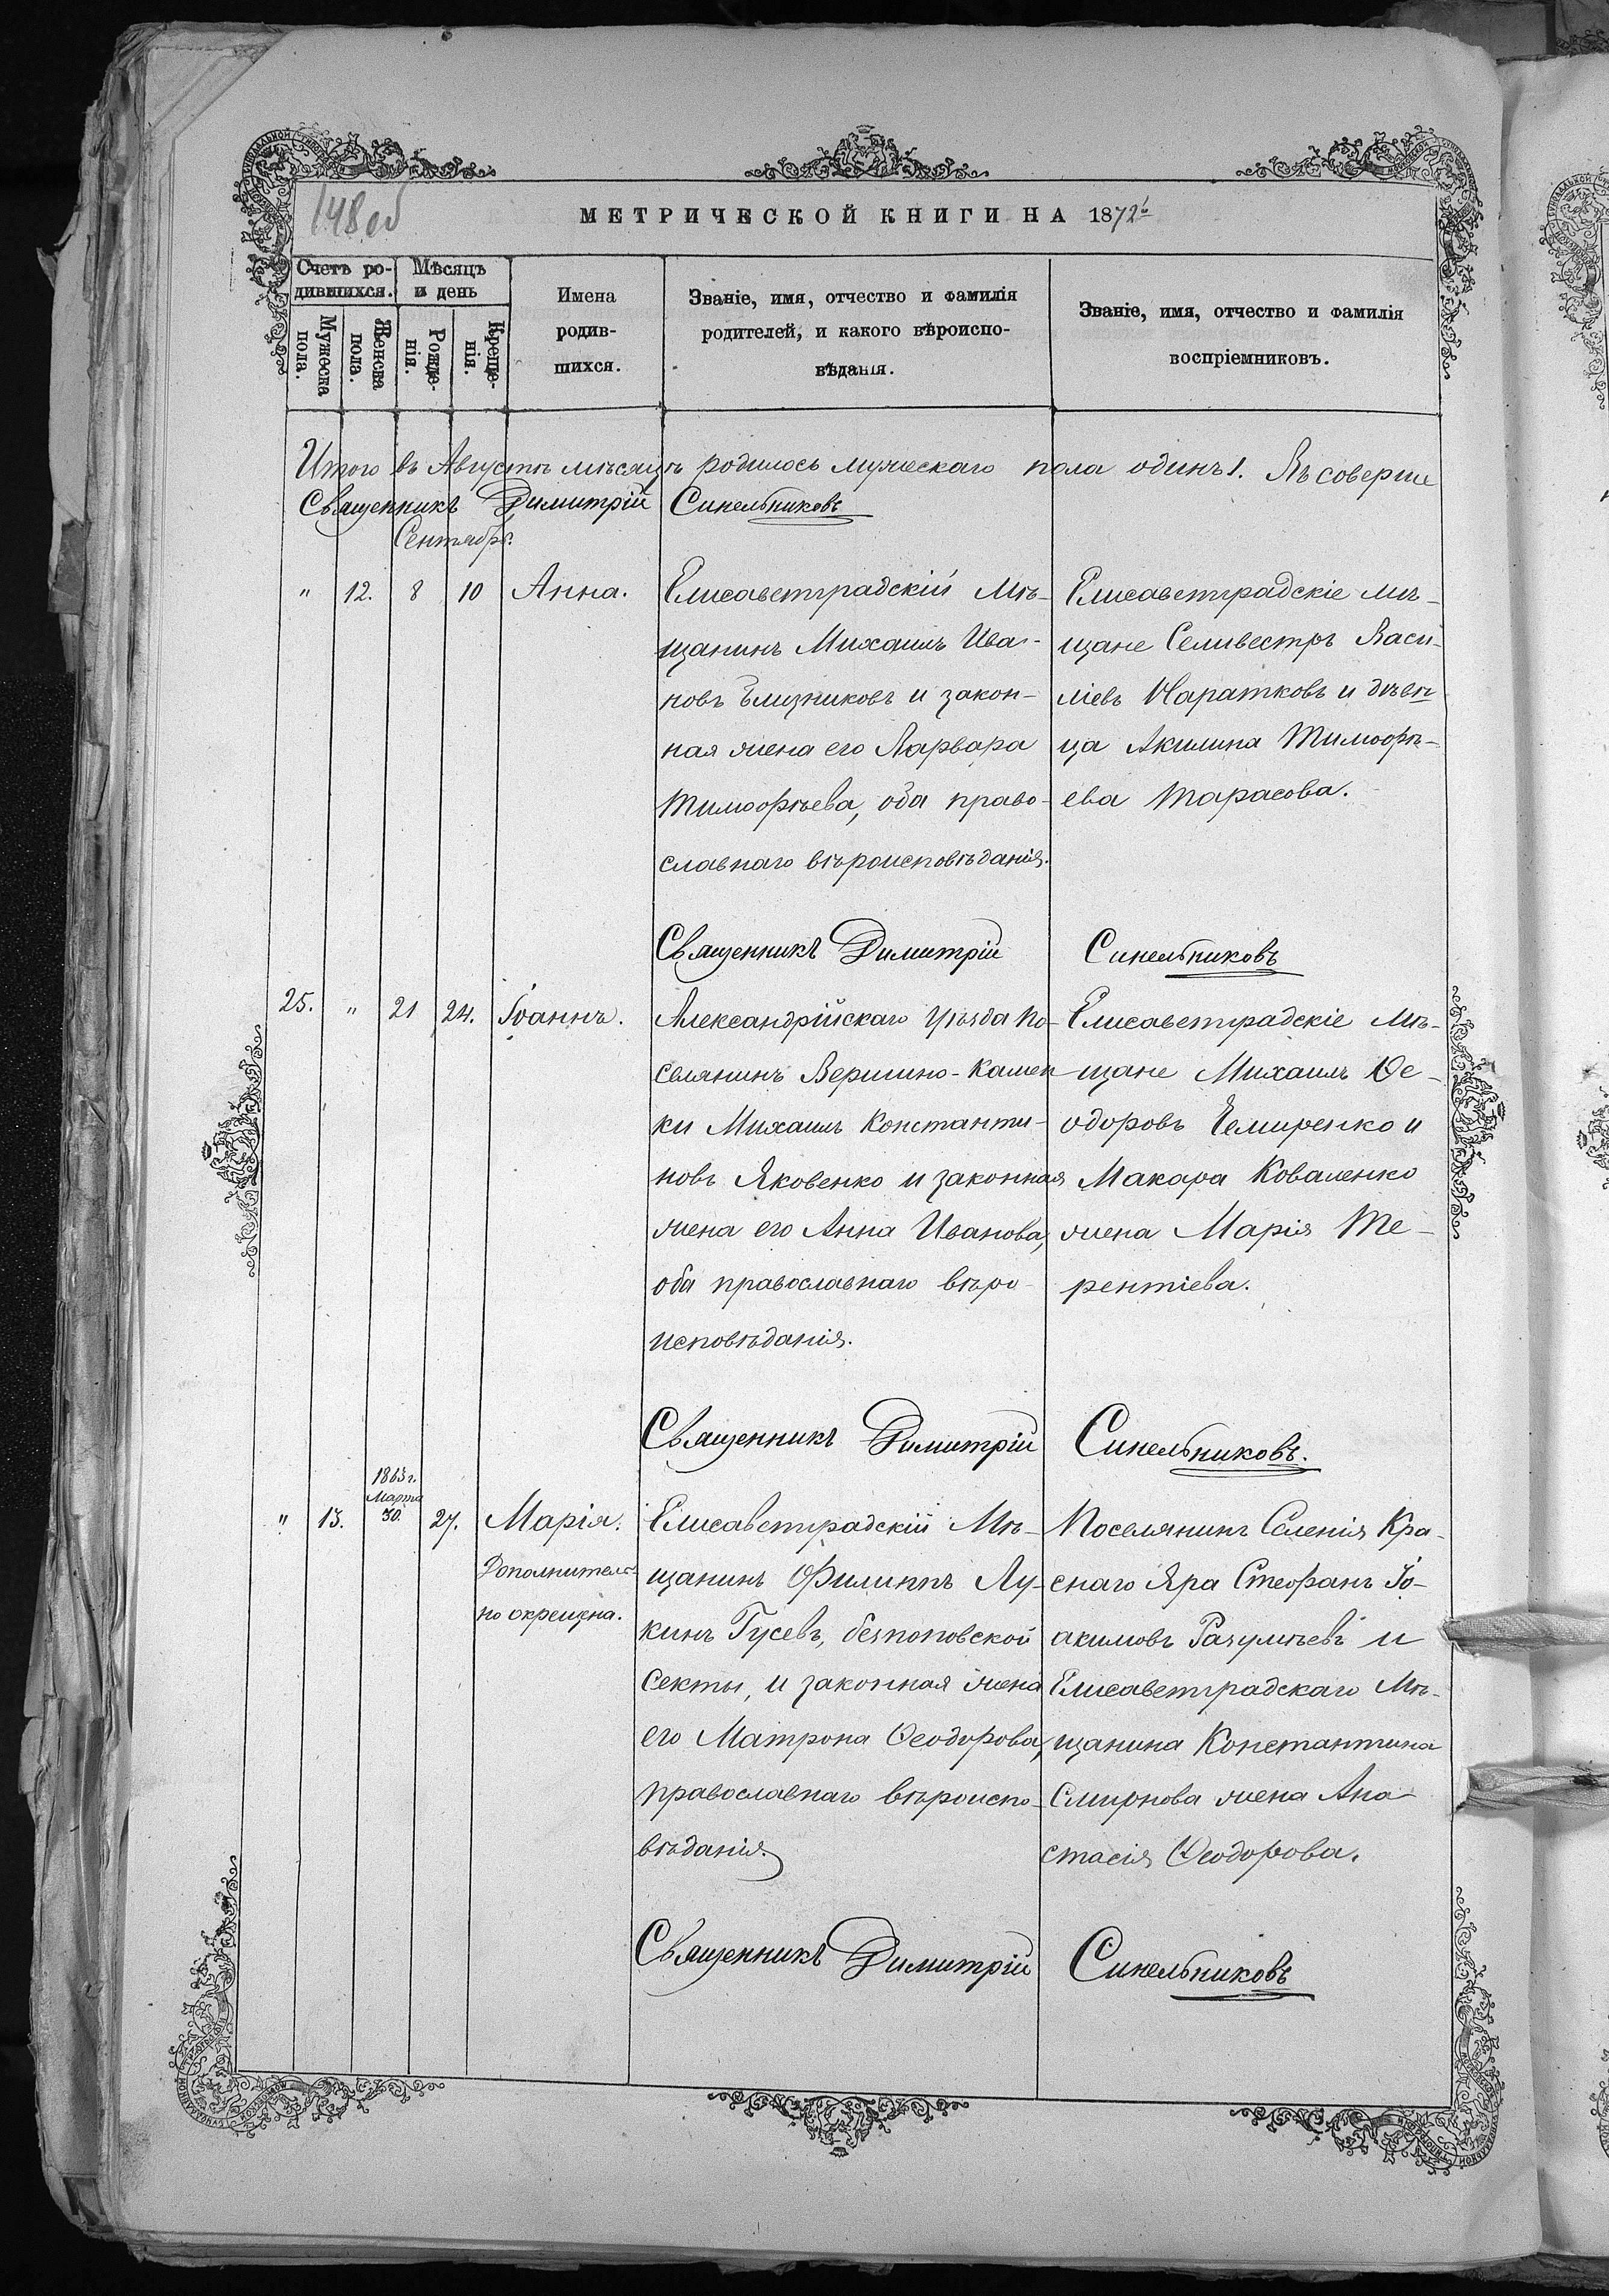 148 об
МЕТРИЧЕСКОЙ КНИГИ НА 1872й
Счетъ ро-
дившихся.
Мѣсяцъ
и день
Мужеска
пола.
Женска
пола.
Рожде-
нія.
Креще-
нія.
Имена
родив-
шихся.
Званіе, имя, отчество и фамилія
родителей, и какого вѣроиспо-
вѣданія.
Званіе, имя, отчество и фамилія
воспріемниковъ.
Итого въ Августѣ мѣсяцѣ родилось мужескаго пола одинъ 1.
Священникъ Димитрій Синельниковъ
Сентябрь.
" 12. 8 10 Анна.
Елисаветградскій Мѣ-
щанинъ Михаилъ Ива-
новъ Близниковъ и закон-
ная жена его Варвара
Тимофѣева, оба право-
славнаго вѣроисповѣданія.
Елисаветградскіе мѣ-
щане Селивестръ Васи-
ліевъ и дѣви
ца Акилина Тимофѣ-
ева Тарасова.
Священникъ Димитрій Синельниковъ
25. " 21 24. Іоаннъ.
Александрійскаго уѣзда По-
селянинъ Вершино-Камен
ки Михаилъ Константи-
новъ Яковенко и законная
жена его Анна Иванова,
оба православнаго вѣро-
исповѣданія.
Елисаветградскіе Мѣ-
щане Михаилъ Ѳе-
одоровъ Чемиренко и
Макара Коваленко
жена Марія Те-
рентіева.
Священникъ Димитрій Синельниковъ.
1863 г.
Марта
" 13. 30. 27. Марія.
Дополнитель-
но окрещена.
Елисаветградскій Мѣ-
щанинъ Филиппъ Лу-
кинъ Гусевъ, безпоповской
секты, и законная жена
его Матрона Ѳеодорова,
православнаго вѣроиспо-
вѣданія.
Поселянинъ Селенія Кра-
снаго Яра Стефанъ Іо-
акимовъ Разумѣевъ и
Елисаветградскаго Мѣ-
щанина Константина
Смирнова жена Ана-
стасія Ѳеодорова.
Священникъ Димитрій Синельниковъ